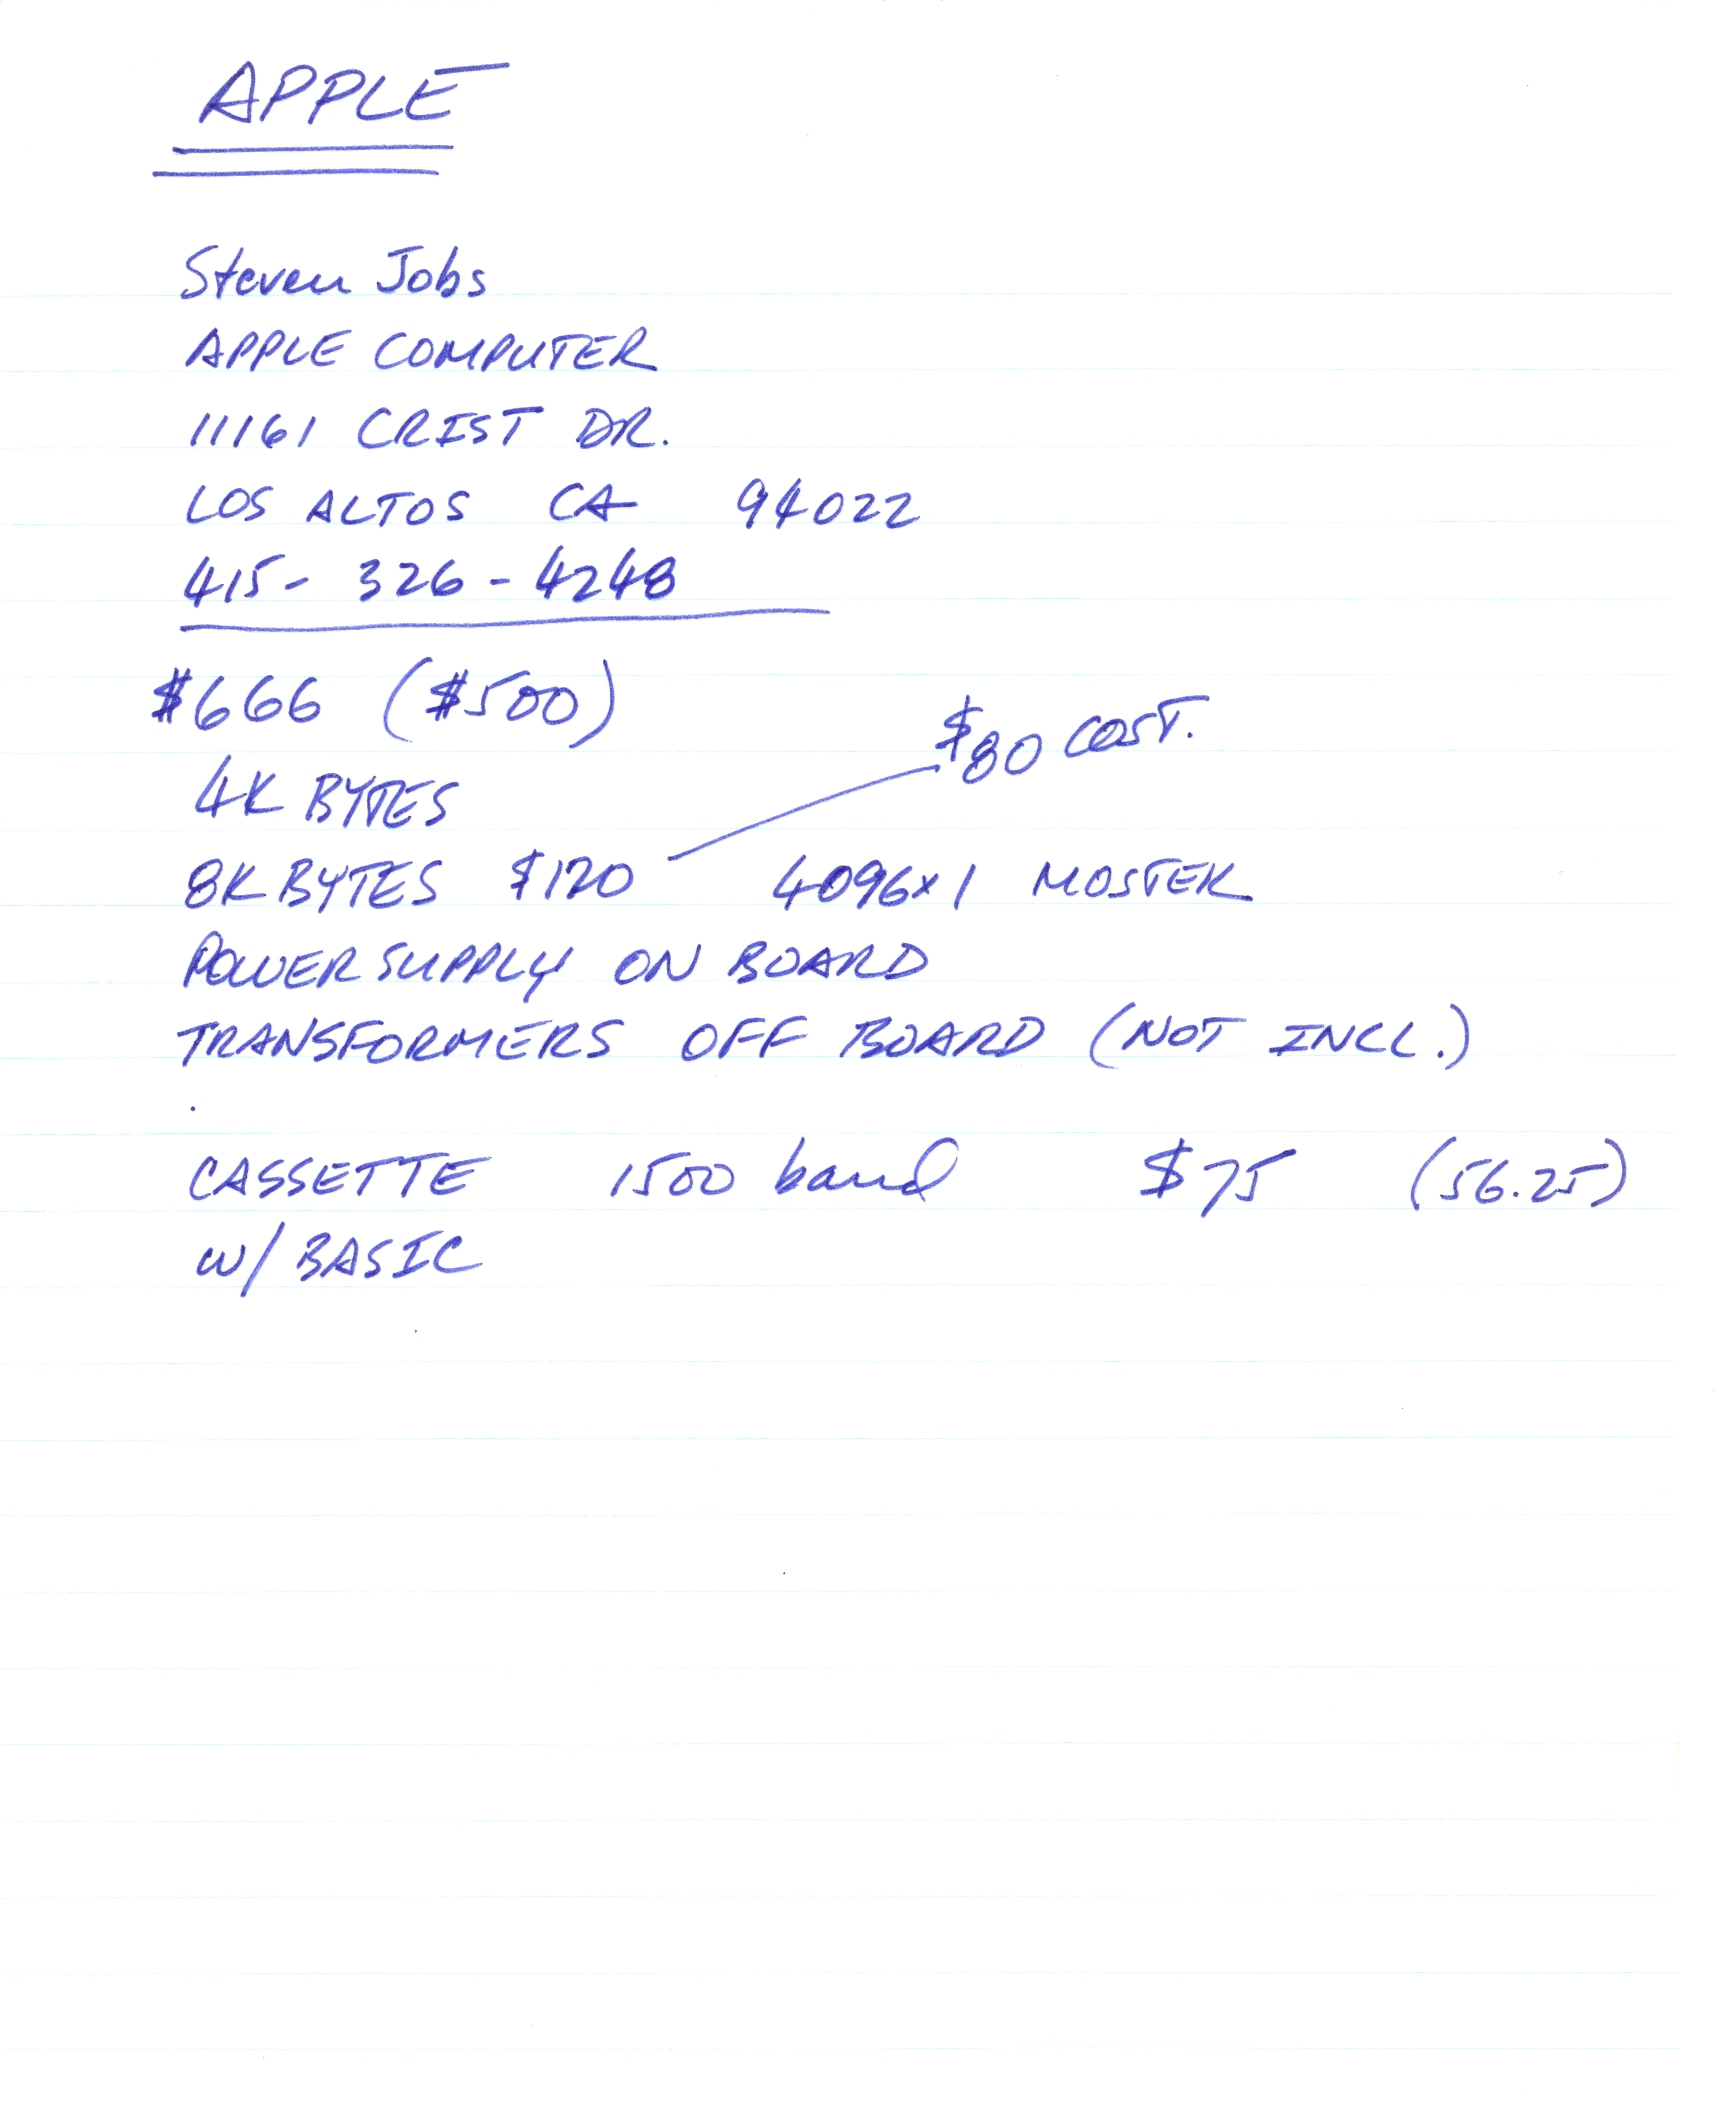 APPLE
Steven Jobs
APPLE COMPUTER
11161 CRIST DR.
LOS ALTOS CA 94022
415- 326-4248
$666 ($500)
$80 COST.
4K BYTES
8K BYTES $120 4096x1 MOSTEK
POWER SUPPLY ON BOARD
TRANSFORMERS OFF BOARD (NOT INCL.)
CASSETTE 1500 baud $75 (56.25)
W/ BASIC